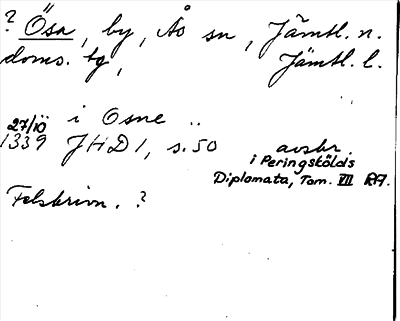 ? Ösa, by, Ås sn, Jämtl. n.
doms. tg, Jämtl. l.
i Osne ..
27/10
1339 JHD 1, s. 50 avskr.
i Peringskölds
Diplomata, Tom. VII RA.
Felskrivn. ?